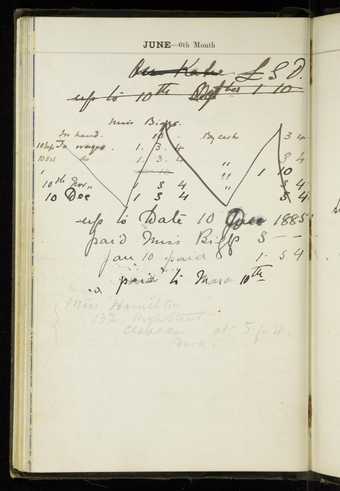 JUNE—6th Month
£ S D.
up to 10th 1 10
Miss Biggs.
In hand. 10 . By cash 3 4
10 Sep To wages. 1. 3. 4
10 Oct to 1. 3. 4 " 3 4
1 10 " 1 10
10th Nov " 1 3 4 " 3 4
10 Dec 1 3 4 3 4
up to Date 10 Jan 1885
paid Miss Biggs 5 – –
Jan 10 paid 1 . 3 4
paid to March 10th
Miss Hamilton
132 High Street
Clapham at 5 p.m.